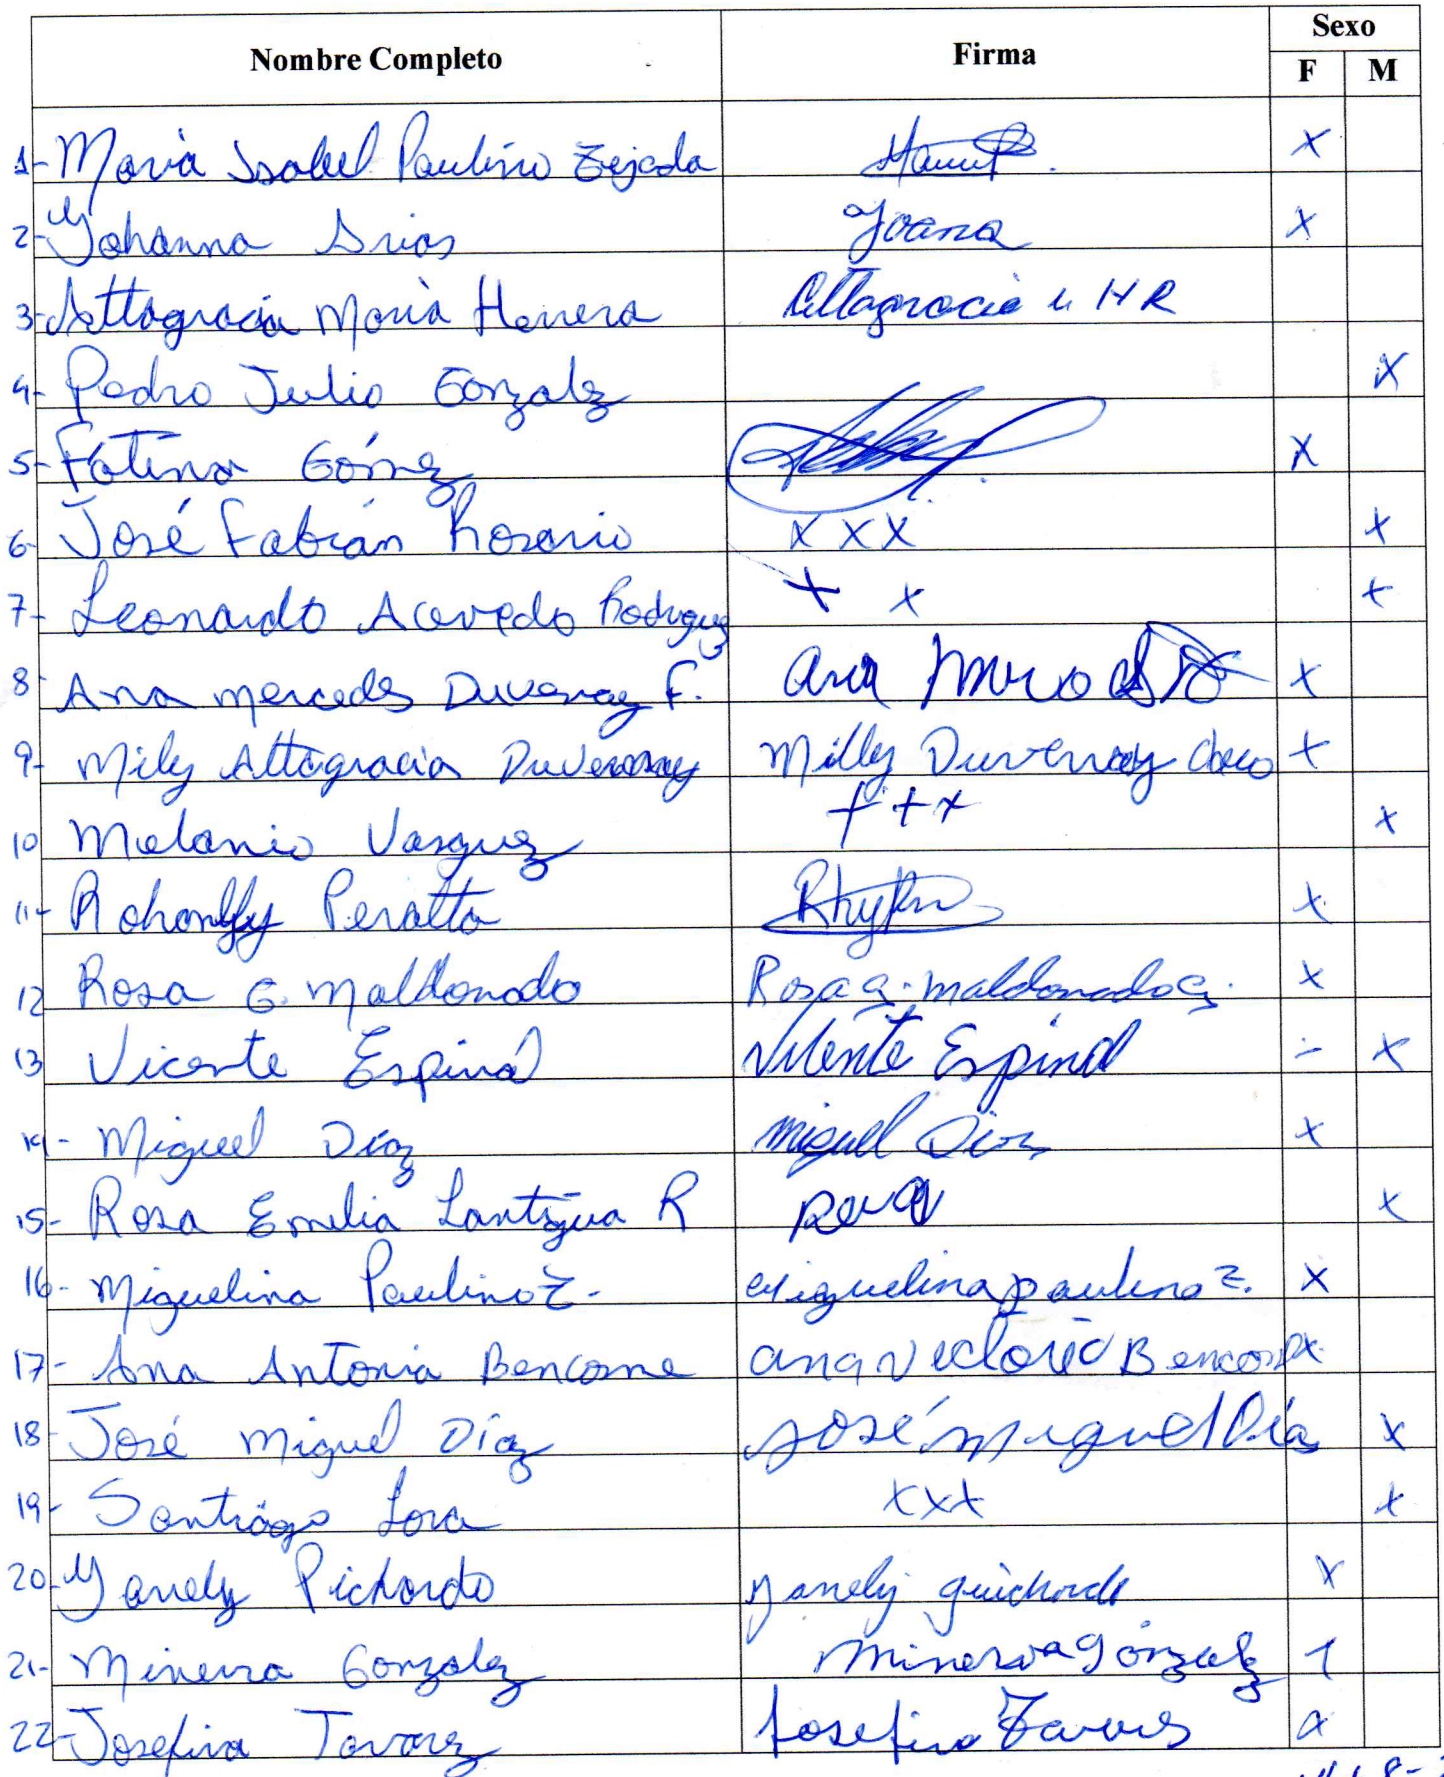 Nombre Completo Firma Sexo
F M
1- Maria Isabel Paulino Tejada X
2- Yohanna Arias Joana X
3- Altagracia Maria Herrera Altagracia M HR
4- Pedro Julio Gonzalz X
5- Fátima Gómez X
6- José Fabián Rosario XXX X
7- Leonardo Acevedo Rodriguez X X X
8- Ana Mercedes Duvernay F. Ana X
9- Mily Altagracia Duvernay Milly Duvernay Checo X
10 Melanio Vasquez +++ X
11- Peralta X
12 Rosa G. Maldonado Rosa G. maldonado G. X
13 Vicente Espinal Vicente Espinal - X
14- Miguel Díaz Miguel Dioz X
15- Rosa Emilia Lantigua R X
16- Miguelina Paulino T. Miguelina paulino T. X
17- Ana Antonia Bencosme ana Victoria Bencosm X
18- José Miguel Díaz José Miguel Día X
19- Santiago Lora XXX X
20- Yanely Pichardo Yanely X
21- Minerva Gonzalez Minerva Gonzalez 1
22- Josefina Tavarez Josefina Tavares X